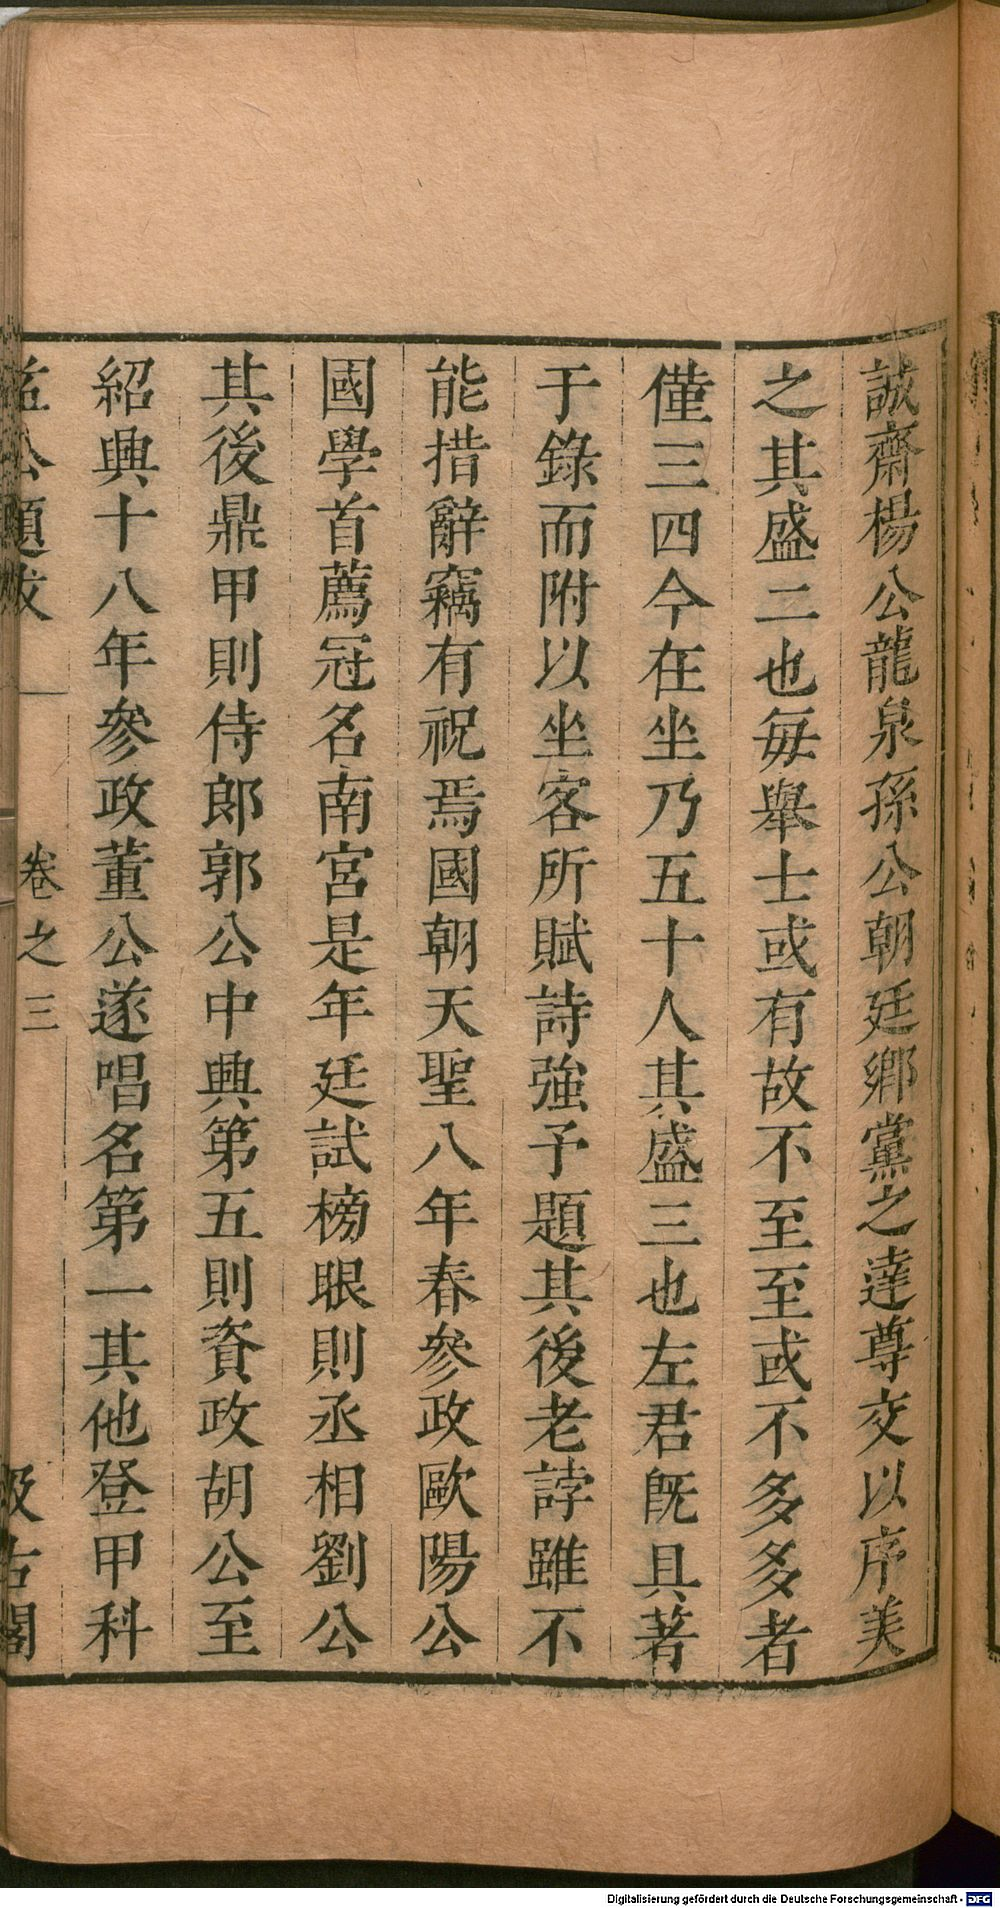 誠齋楊公龍泉孫公朝廷鄉黨之達尊交以序美
之其盛二也每舉士或有故不至至或不多多者
僅三四今在坐乃五十人其盛三也左君既具著
于錄而附以坐客所賦詩強予題其後老誖雖不
能措辭竊有祝焉國朝天聖八年春參政歐陽公
國學首薦冠名南宮是年廷試榜眼則丞相劉公
其後鼎甲則侍郎郭公中興第五則資政胡公至
紹興十八年參政董公遂唱名第一其他登甲科
益公題跋
卷之三
汲古閣
Digitalisierung gefördert durch die Deutsche Forschungsgemeinschaft - DFG